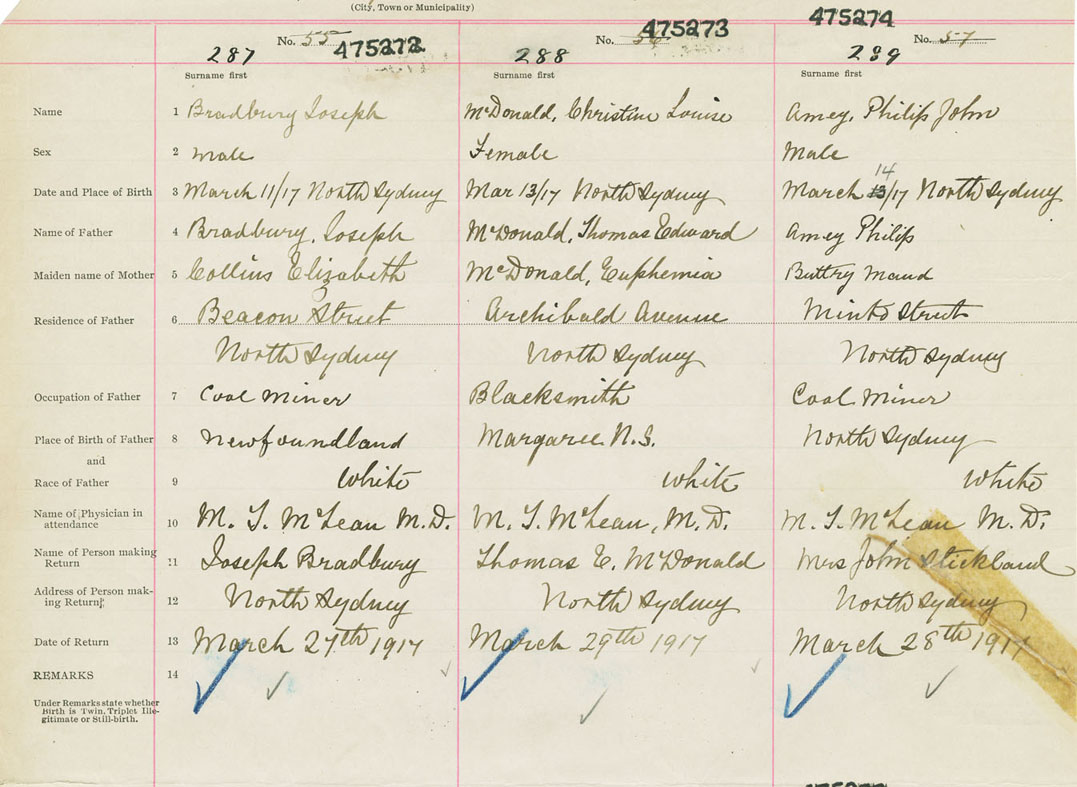 (City, Town or Municipality)
No. 55 475272 No. 56 475273 475274 No. 57
287 288 289
Surname first Surname first Surname first
Name 1 Bradbury Joseph McDonald, Christine Louise Amey, Philip John
Sex 2 Male Female Male
14
Date and Place of Birth 3 March 11/17 North Sydney Mar 13/17 North Sydney March 13/17 North Sydney
Name of Father 4 Bradbury, Joseph McDonald, Thomas Edward Amey Philip
Maiden name of Mother 5 Collins Elizabeth McDonald, Euphemia Buttry Maud
Residence of Father 6 Beacon Street Archibald Avenue Minto Street
North Sydney North Sydney North Sydney
Occupation of Father 7 Coal Miner Blacksmith Coal Miner
Place of Birth of Father 8 Newfoundland Margaree N.S. North Sydney
and
Race of Father 9 White White White
Name of Physician in attendance 10 M. T. McLean M.D. M. T. McLean, M.D. M. T. McLean M.D.
Name of Person making Return 11 Joseph Bradbury Thomas E. McDonald Mrs John Stickland
Address of Person making Return 12 North Sydney North Sydney North Sydney
Date of Return 13 March 27th 1917 March 29th 1917 March 28th 1917
REMARKS 14
Under Remarks state whether
Birth is Twin, Triplet Ille-
gitimate or Still-birth.